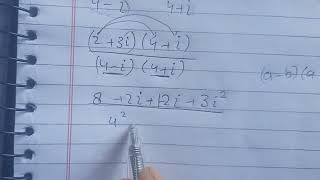 4-i 4+i
(2+3i)(4+i)
(4-i)(4+i)
(a-b)(a
8+2i+12i+3i²
4²